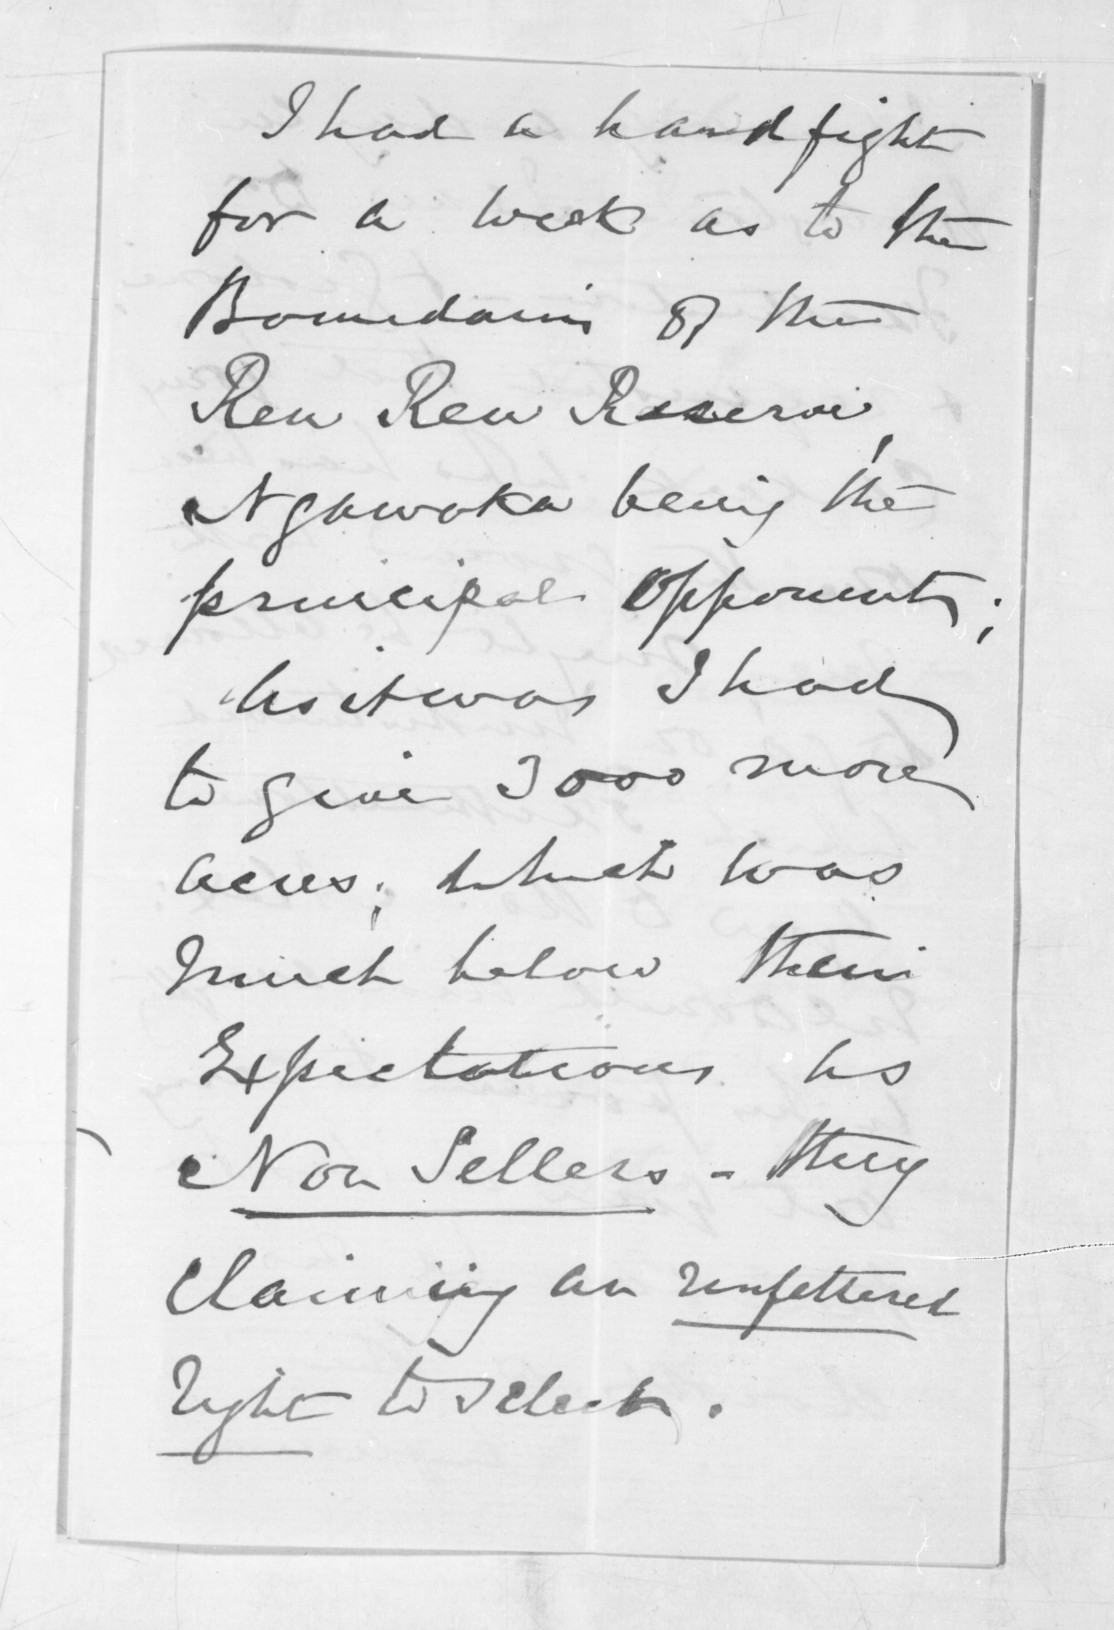 I had a hard fight
for a week as to the
Boundaries of the
Reu Reu Reserve,
Ngawaka being the
principal opponent;
As it was I had
to give 3000 more
acres; which was
much below their
Expectations as
Non Sellers - they
claiming an unfettered
right to select.